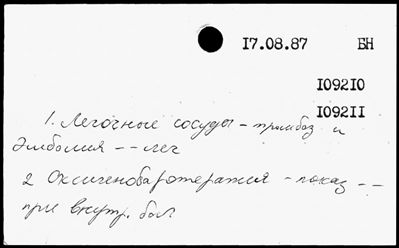 17.08.87 БН
109210
109211
1. Легочные сосуды - тромбоз и
эмболия -- лег
2 Оксигенобаротерапия - показ --
при внутр. бол